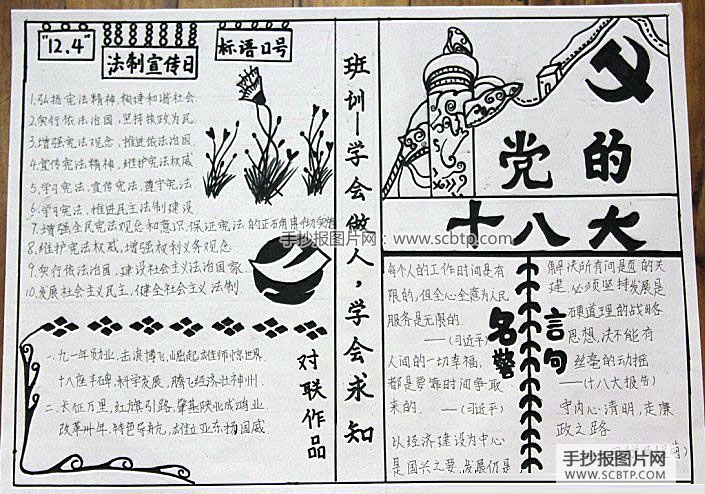 "12.4"
法制宣传日
标语口号
1.弘扬宪法精神,构建和谐社会
2.实行依法治国,坚持执政为民
3.增强宪法观念,推进依法治国
4.宣传宪法精神,维护宪法权威
5.学习宪法,宣传宪法,遵守宪法
6.学习宪法,推进民主法制建设
7.增强全民宪法观念和意识,保证宪法的正确
8.维护宪法权威,增强权利义务观念
9.实行依法治国,建设社会主义法治国家
10.发展社会主义民主,健全社会主义法制
一、九一年
击浪搏飞,崛起雄师惊世界
十八座丰碑,科学发展,腾飞经济壮神州.
二、长征万里,红旗引路,肇基陕北成鸿业.
改革卅年,特色导航,雄立亚东扬国威
对联作品
班训—学会做人,学会求知
党的
十八大
手抄报图片网:www.scbtp.com
每个人的工作时间是有
限的,但全心全意为人民
服务是无限的.
—(习近平)
人间的一切幸福,
都是要靠时间争取
来的. —(习近平)
以经济建设为中心
是国兴之要,发展仍是
名言警句
解决所有问题的关
建,必须坚持发展是
硬道理的战略
思想,决不能有
丝毫的动摇
—(十八大报告)
守内心清明,走廉
政之路
手抄报图片网
WWW.SCBTP.COM